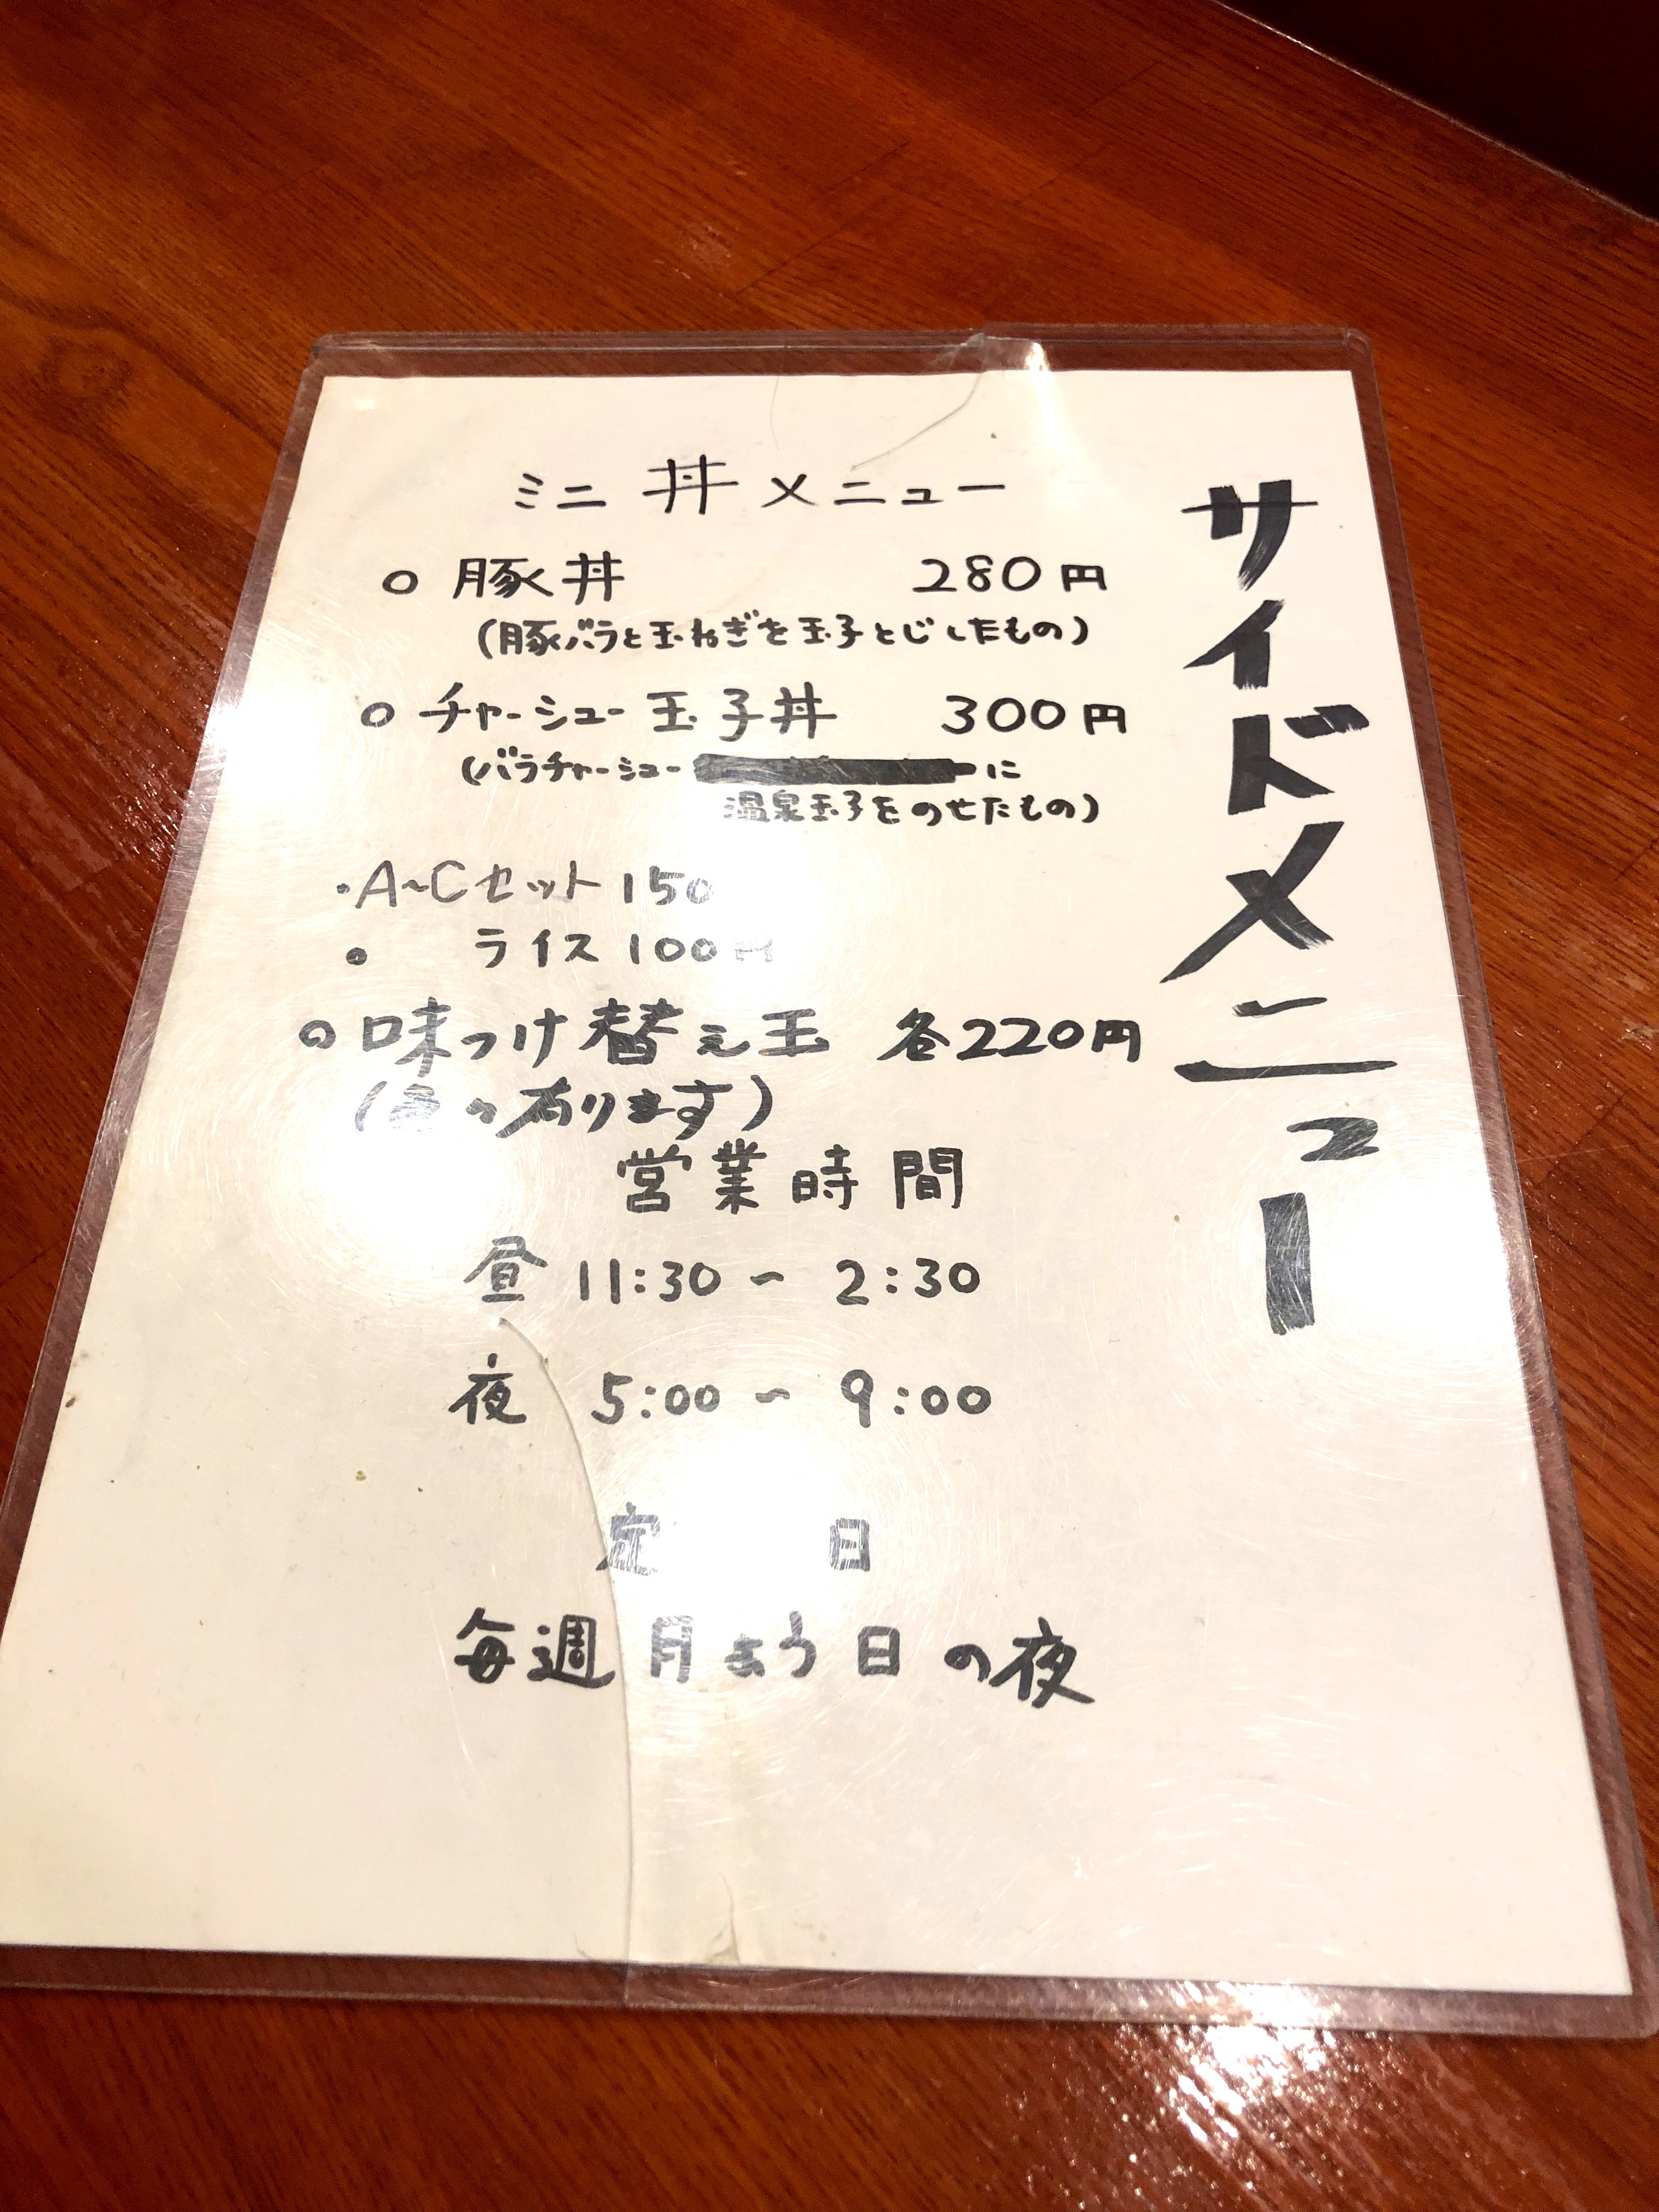 サイドメニュー
ミニ丼メニュー
○ 豚丼 280円
(豚バラと玉ねぎを玉子とじしたもの)
○ チャーシュー玉子丼 300円
(バラチャーシュー に
温泉玉子をのせたもの)
・A~Cセット 150
● ライス 100円
○ 味つけ替え玉 各220円
(色々有ります)
営業時間
昼 11:30 ~ 2:30
夜 5:00 ~ 9:00
定 日
毎週月よう日の夜